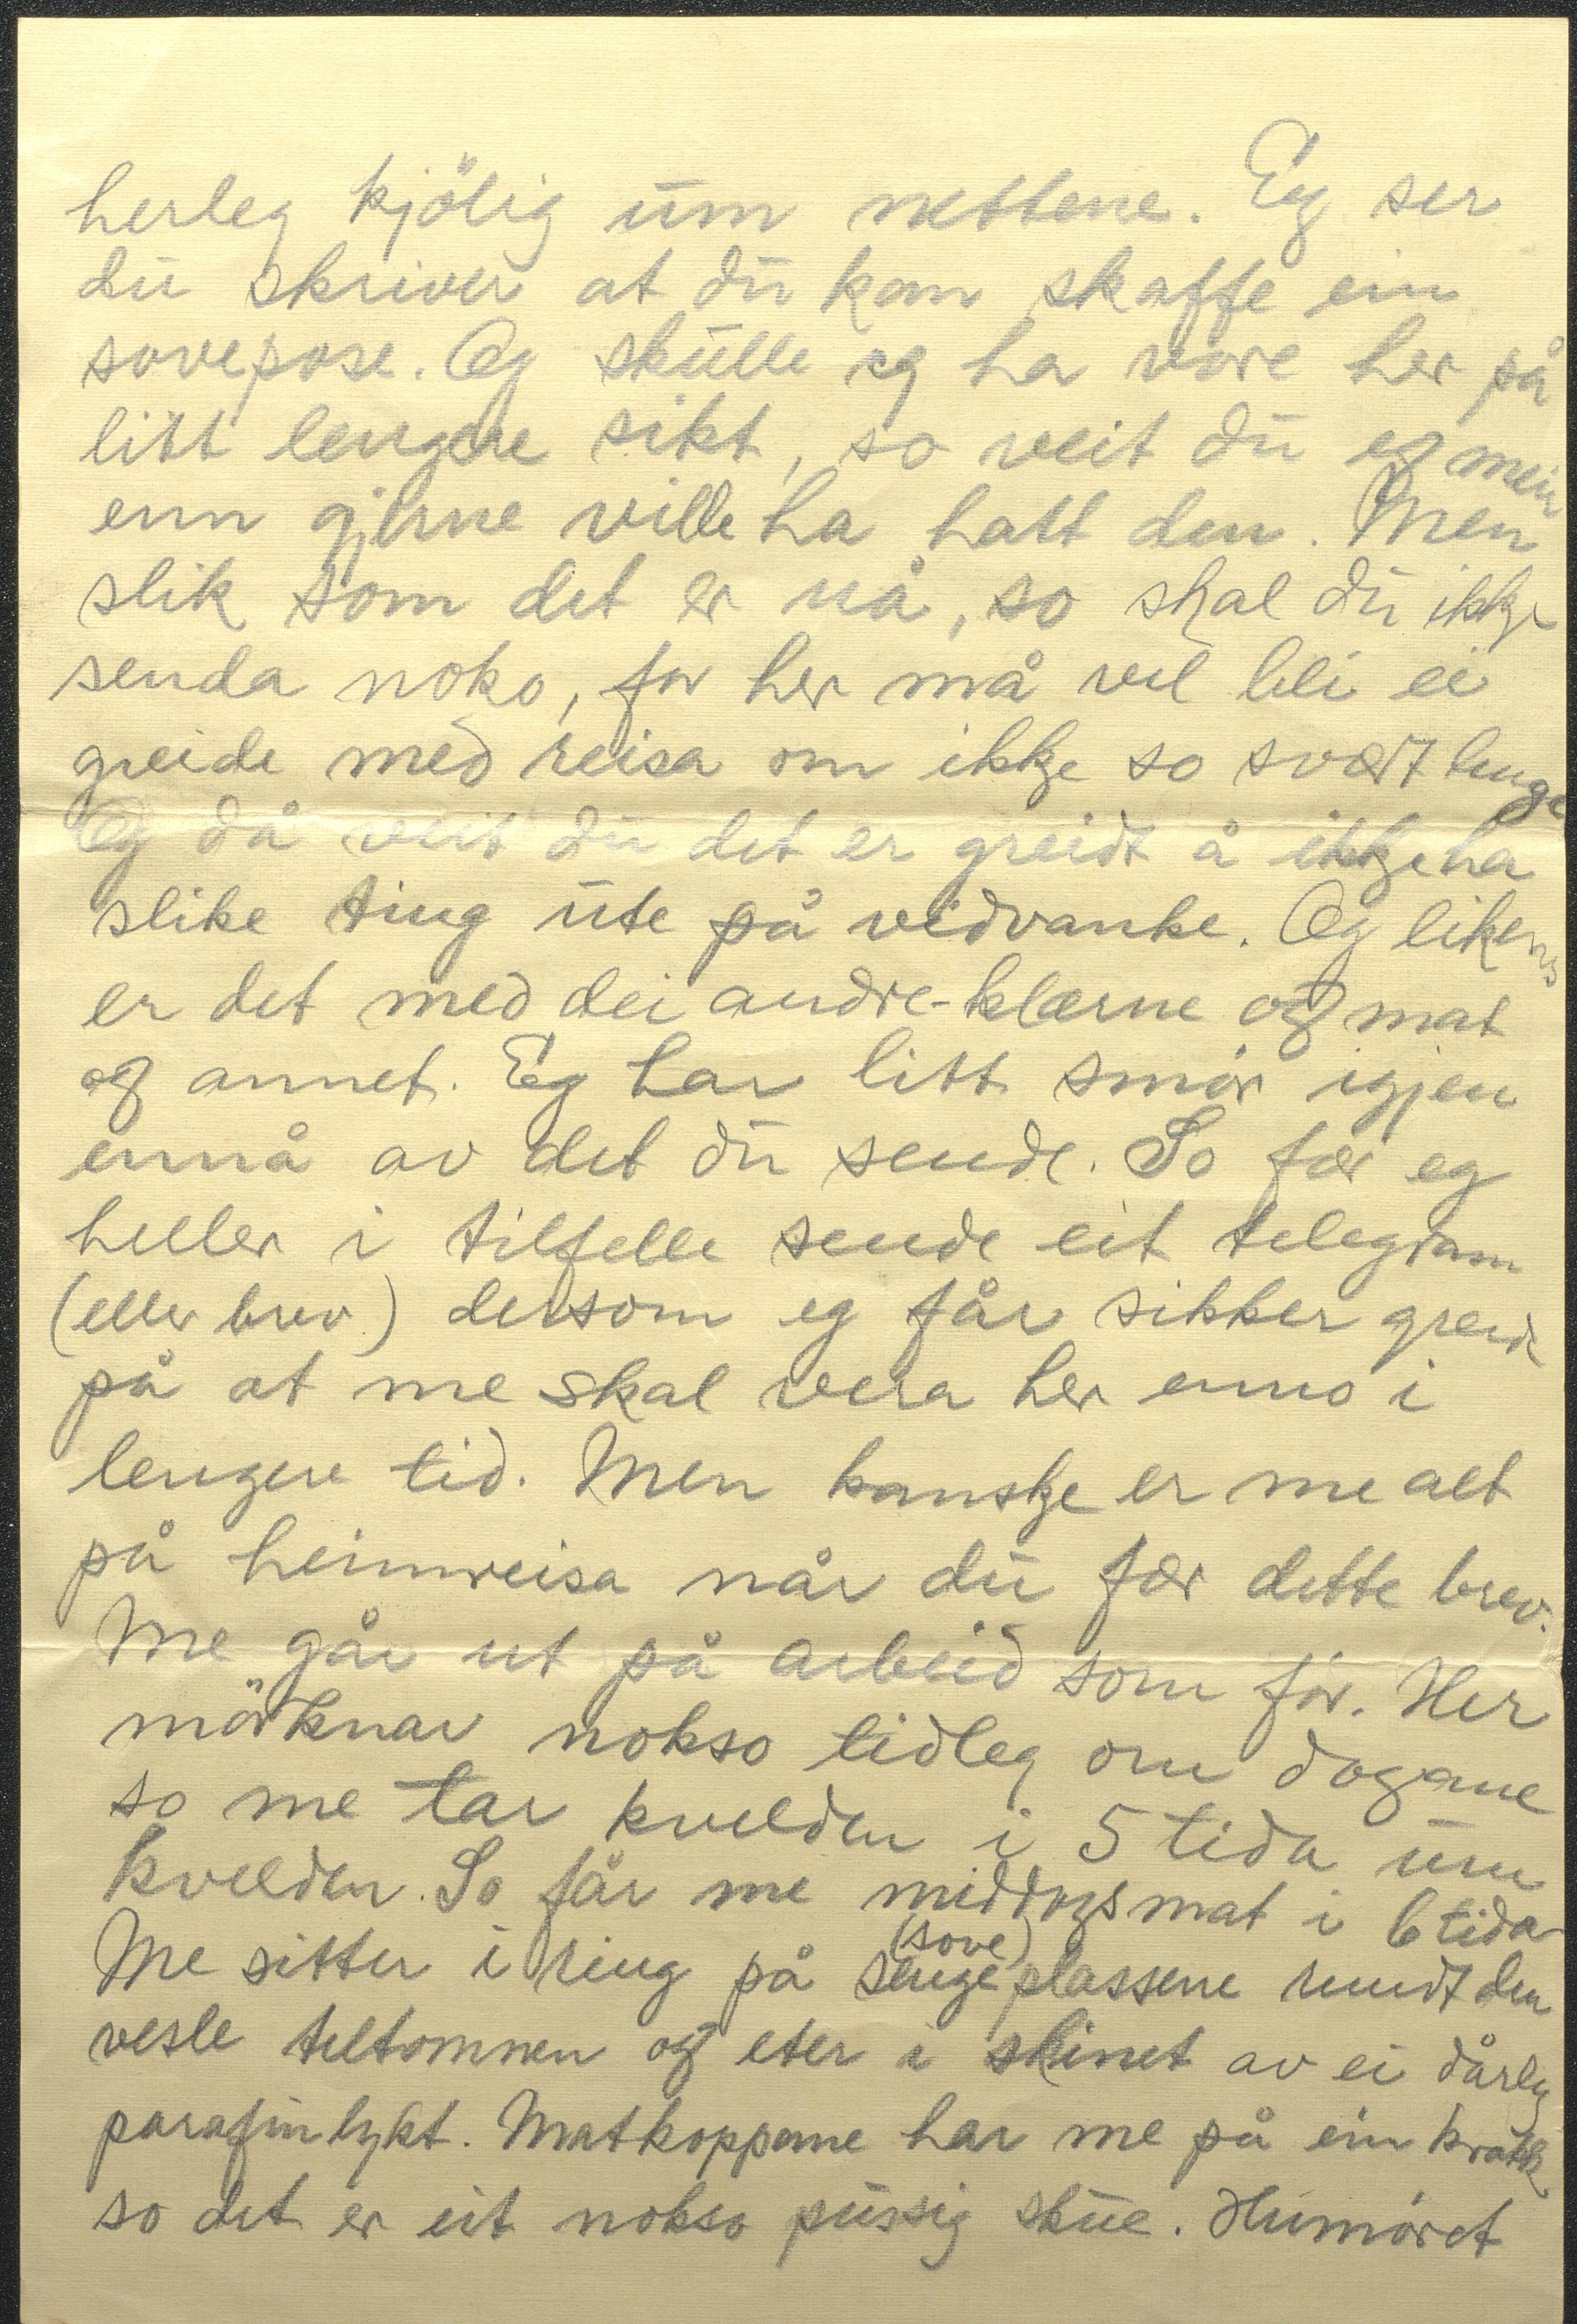 herleg kjölig um nettene. Eg ser
du skriver at du kan skaffe ein
sovepose. Og skulle eg ha vore her på
litt lengere sikt, so veit du eg mein
enn gjerne ville ha hatt den. Men
slik som det er nå, so skal du ikkje
senda noko, for her må vel bli ei
greide med reisa om ikkje so svært lenge
Og då veit du det er greidt å ikkje ha
slike ting ute på vidvanke. Og likens
er det med dei andre klærne og mat
og annet. Eg har litt smör igjen
ennå av det du sende. So fær eg
heller i tilfelle sende eit telegram
(eller brev) dersom eg får sikker greide
på at me skal vera her enno i
lengere tid. Men kanskje er me alt
på heimreisa når du fær dette brev.
Me går ut på arbeid som för. Her
mörknar nokso tidleg om dagane
so me tar kvelden i 5 tida um
kvelden. So får me middagsmat i 6 tida
Me sitter i ring på senge (sove) plassene rundt den
vesle teltomnen og eter i skinet av ei dårleg
parafinlykt. Matkoppane har me på ein krakk
so det er eit nokso pussig skue. Humöret